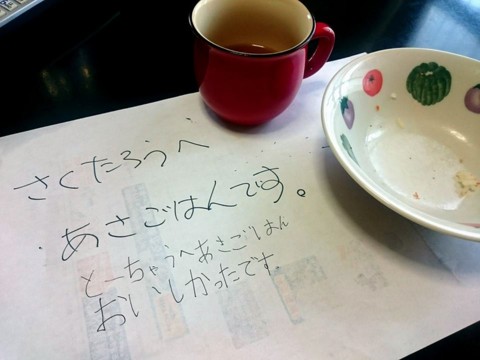 さくたろうへ
あさごはんです。
とーちゃんへあさごはん
おいしかったです.